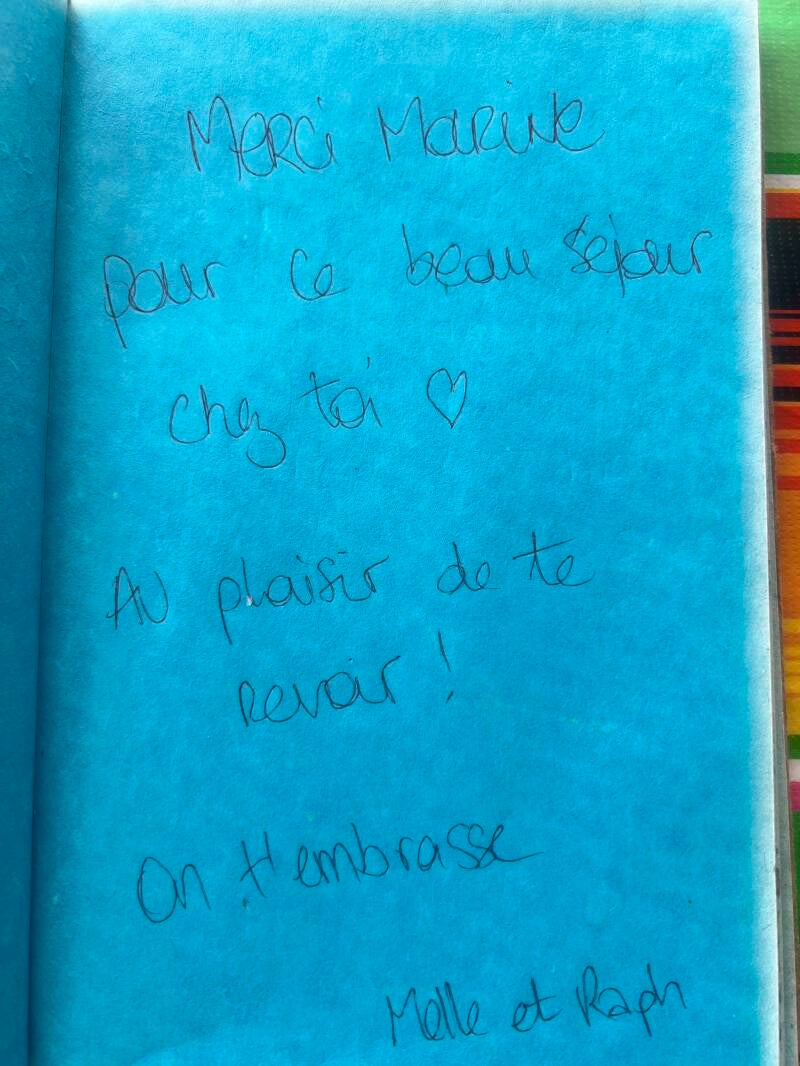 Merci Marine
pour ce beau séjour
chez toi ♡
Au plaisir de te
revoir !
On t'embrasse
Melle et Raph